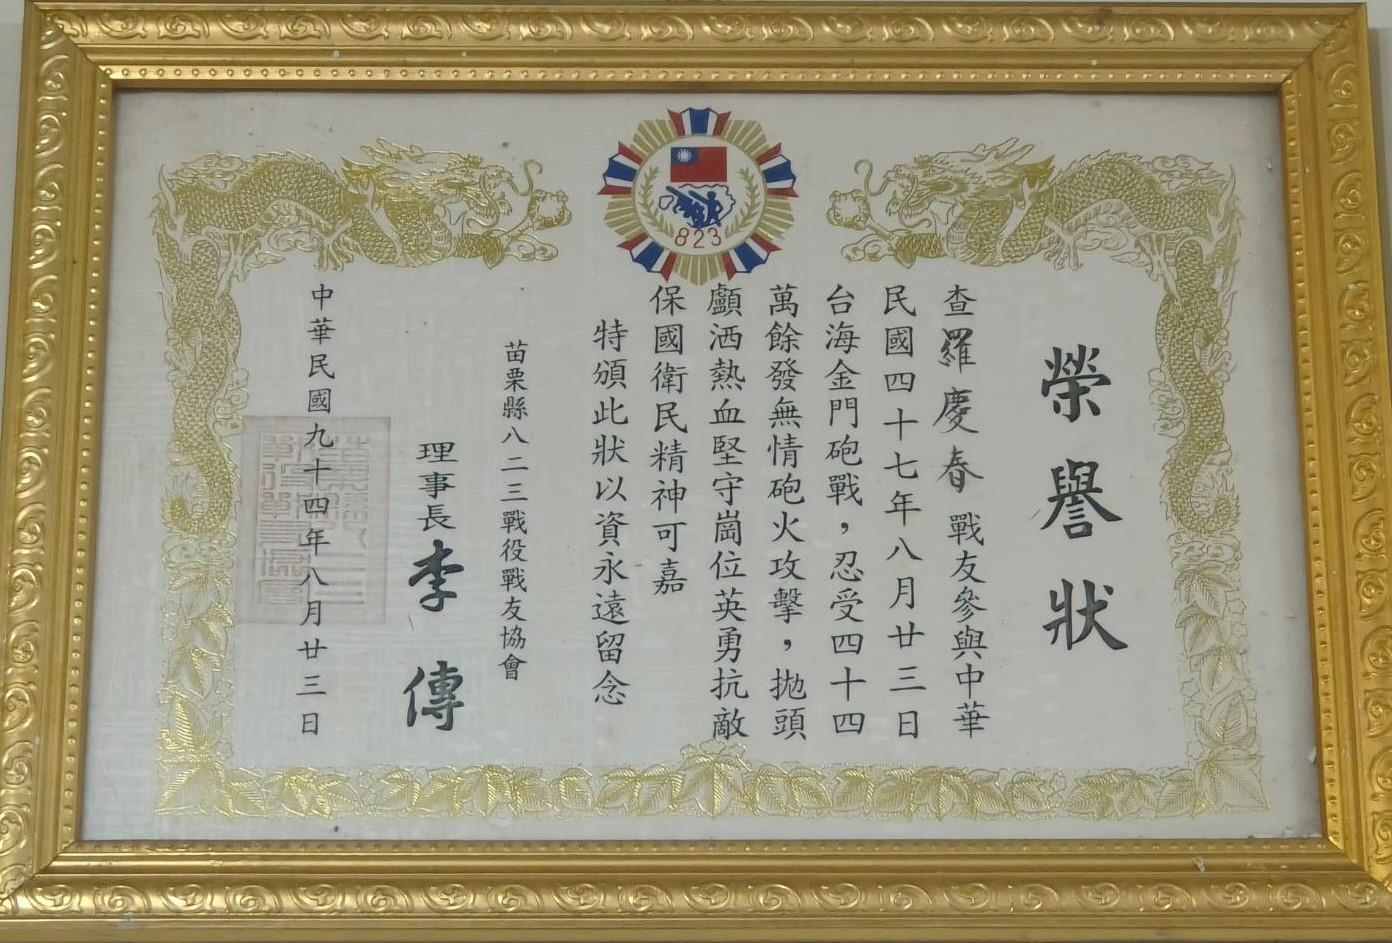 823
榮譽狀
查羅慶春戰友參與中華
民國四十七年八月廿三日
台海金門砲戰，忍受四十四
萬餘發無情砲火攻擊，拋頭
顱洒熱血堅守崗位英勇抗敵
保國衛民精神可嘉
特頒此狀以資永遠留念
苗栗縣八二三戰役戰友協會
理事長李傳
中華民國九十四年八月廿三日